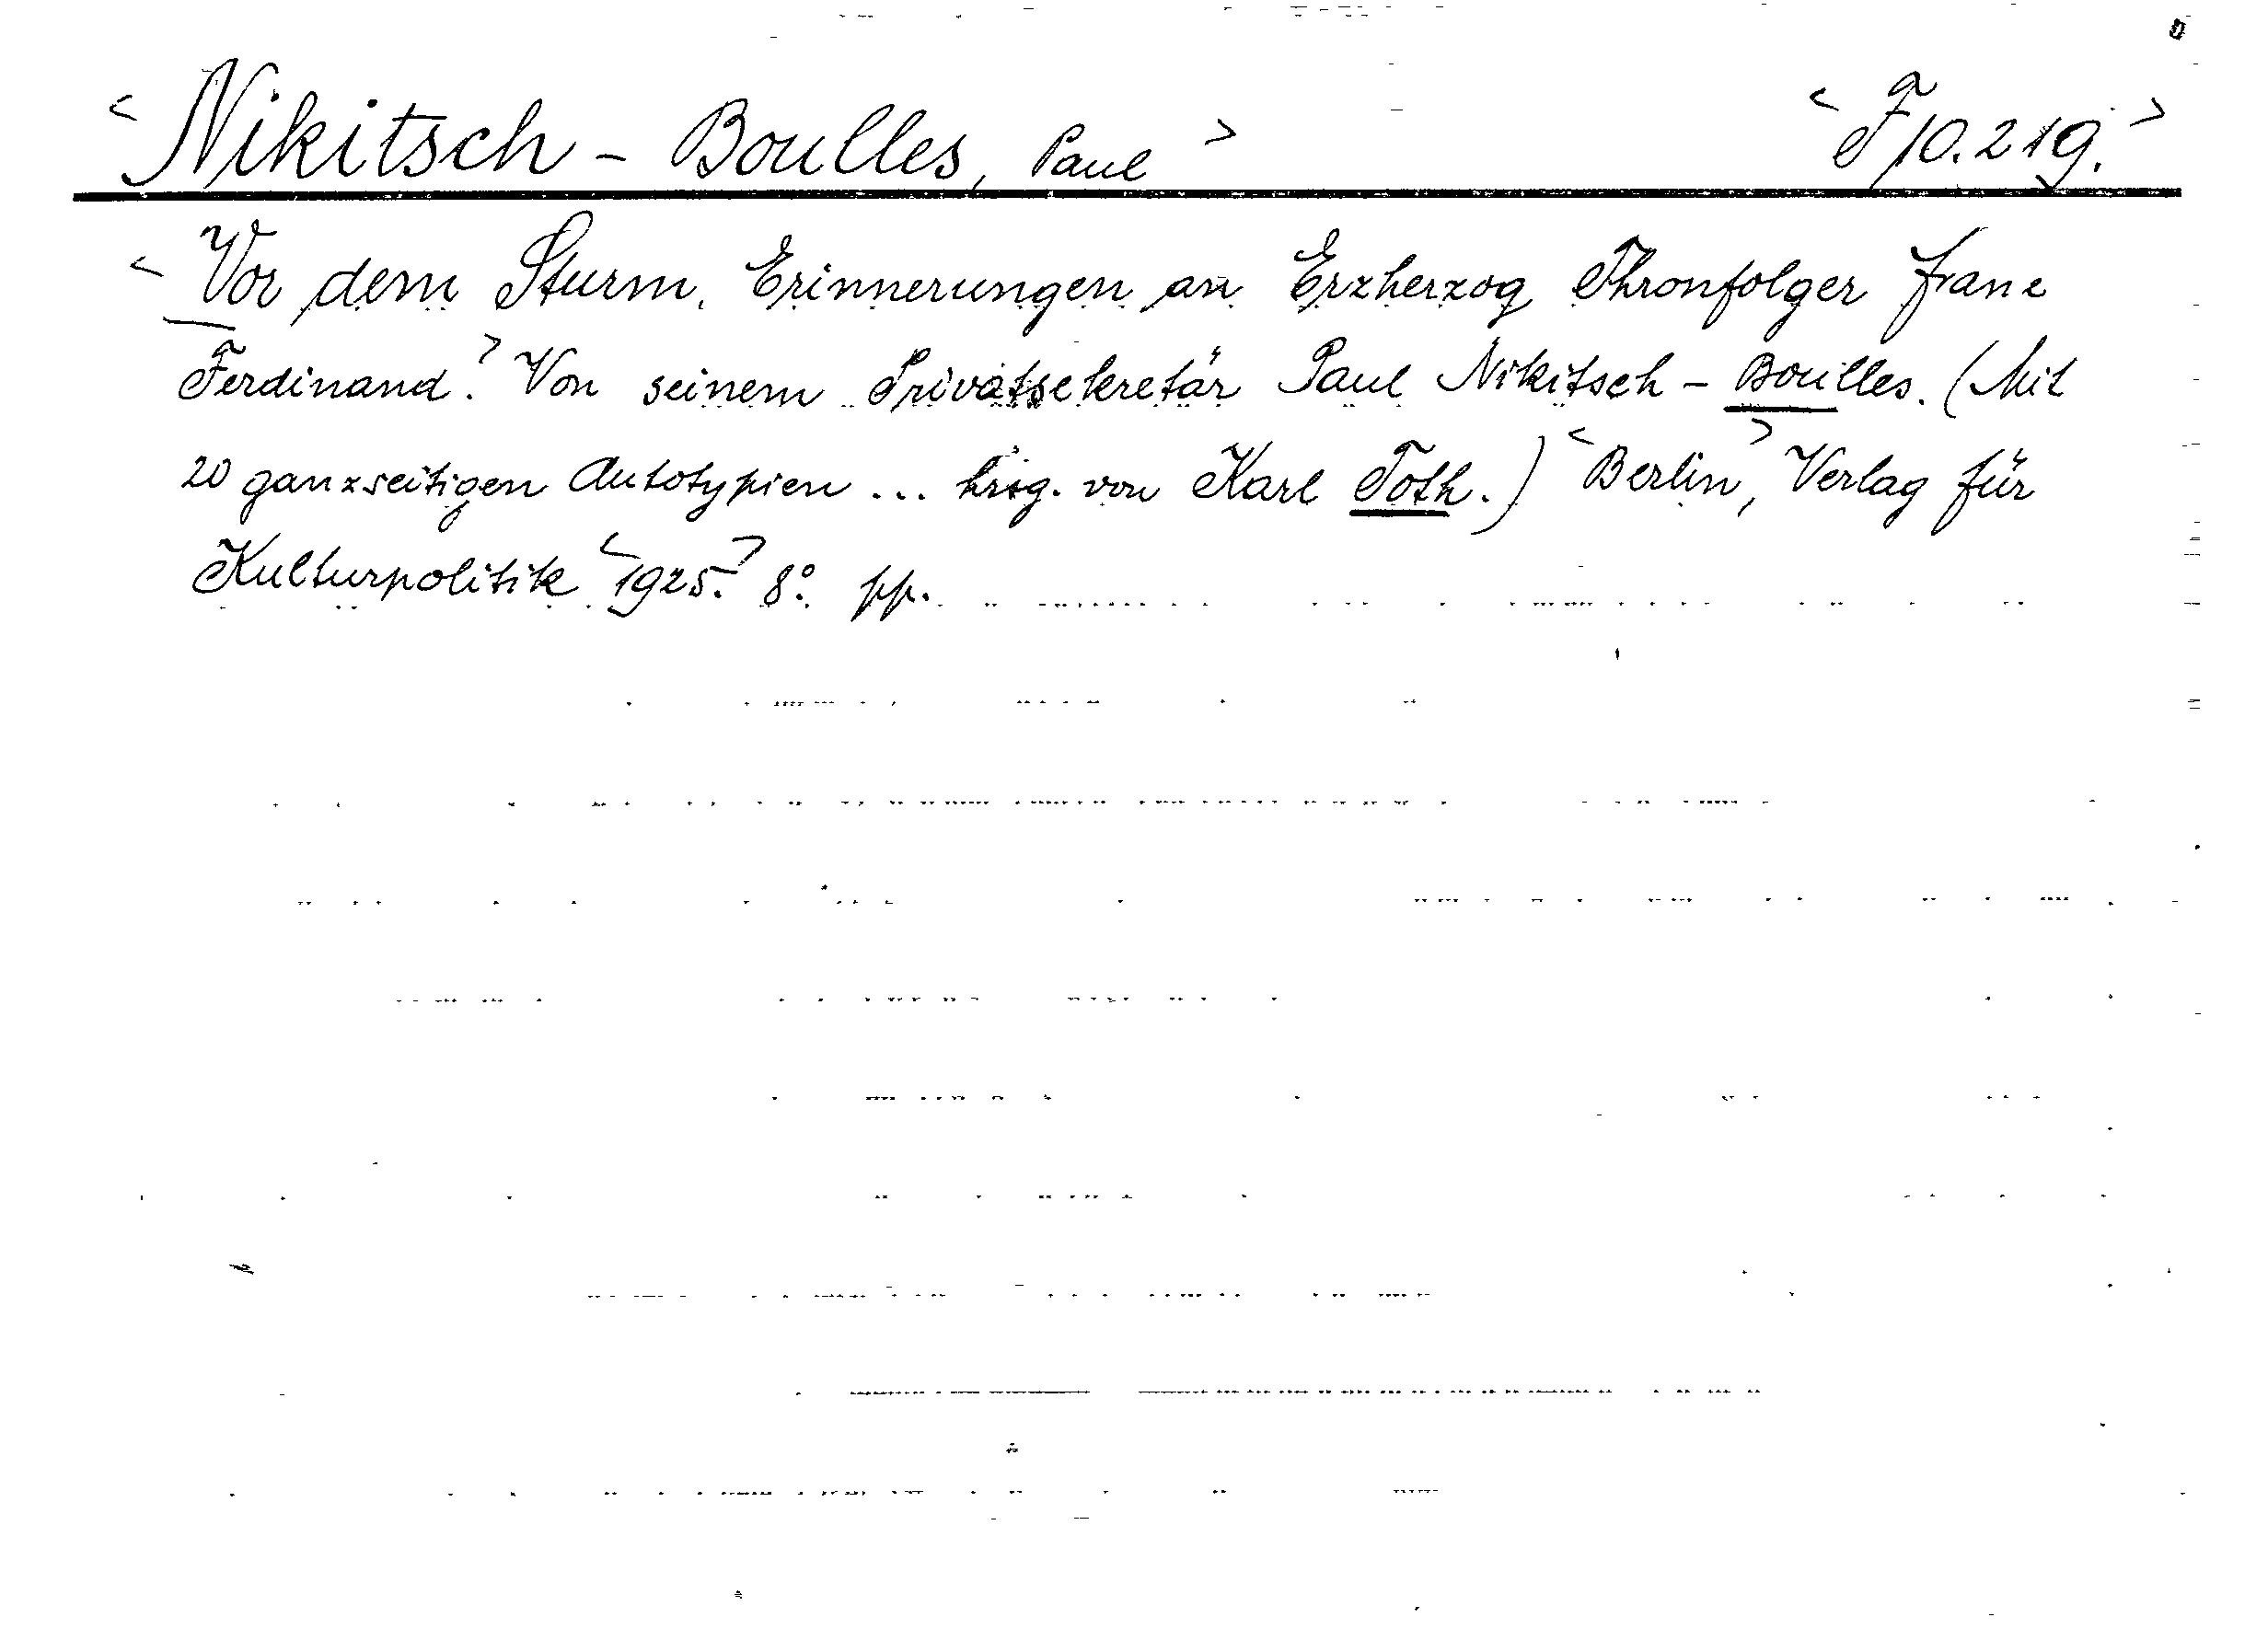 <Nikitsch - Boulles, Paul> <F 10.219.>
<Vor dem Sturm. Erinnerungen an Erzherzog Thronfolger Franz
Ferdinand.> Von seinem Privatsekretär Paul Nikitsch - Boulles. (Mit
20 ganzseitigen Autotypien ... hrsg. von Karl Toth.) <Berlin>, Verlag für
Kulturpolitik <1925.> 8°. pp.